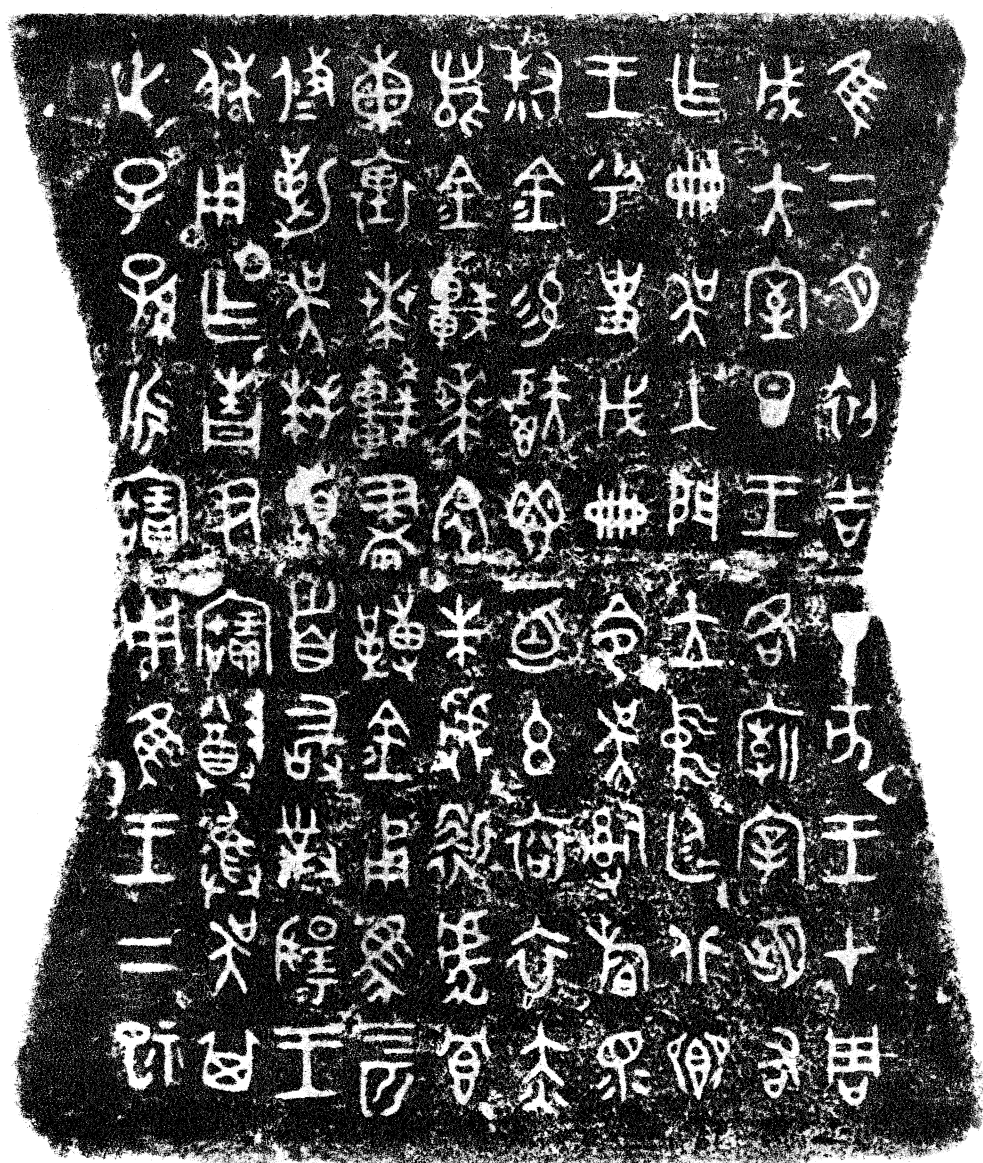 隹二月初吉丁亥王才周
成大室旦王各廟宰朏右
乍冊吳入門立中廷北鄉
王乎史戊冊令吳𤔲㫃眔
叔金易秬鬯一卣玄袞衣赤
舄金車𠦪㡇朱虢靳虎冟
熏裏𠦪較畫轉金甬馬四匹
攸勒吳拜稽首敢對揚王
休用乍青尹寶尊彝吳其
世子孫永寶用隹王二祀